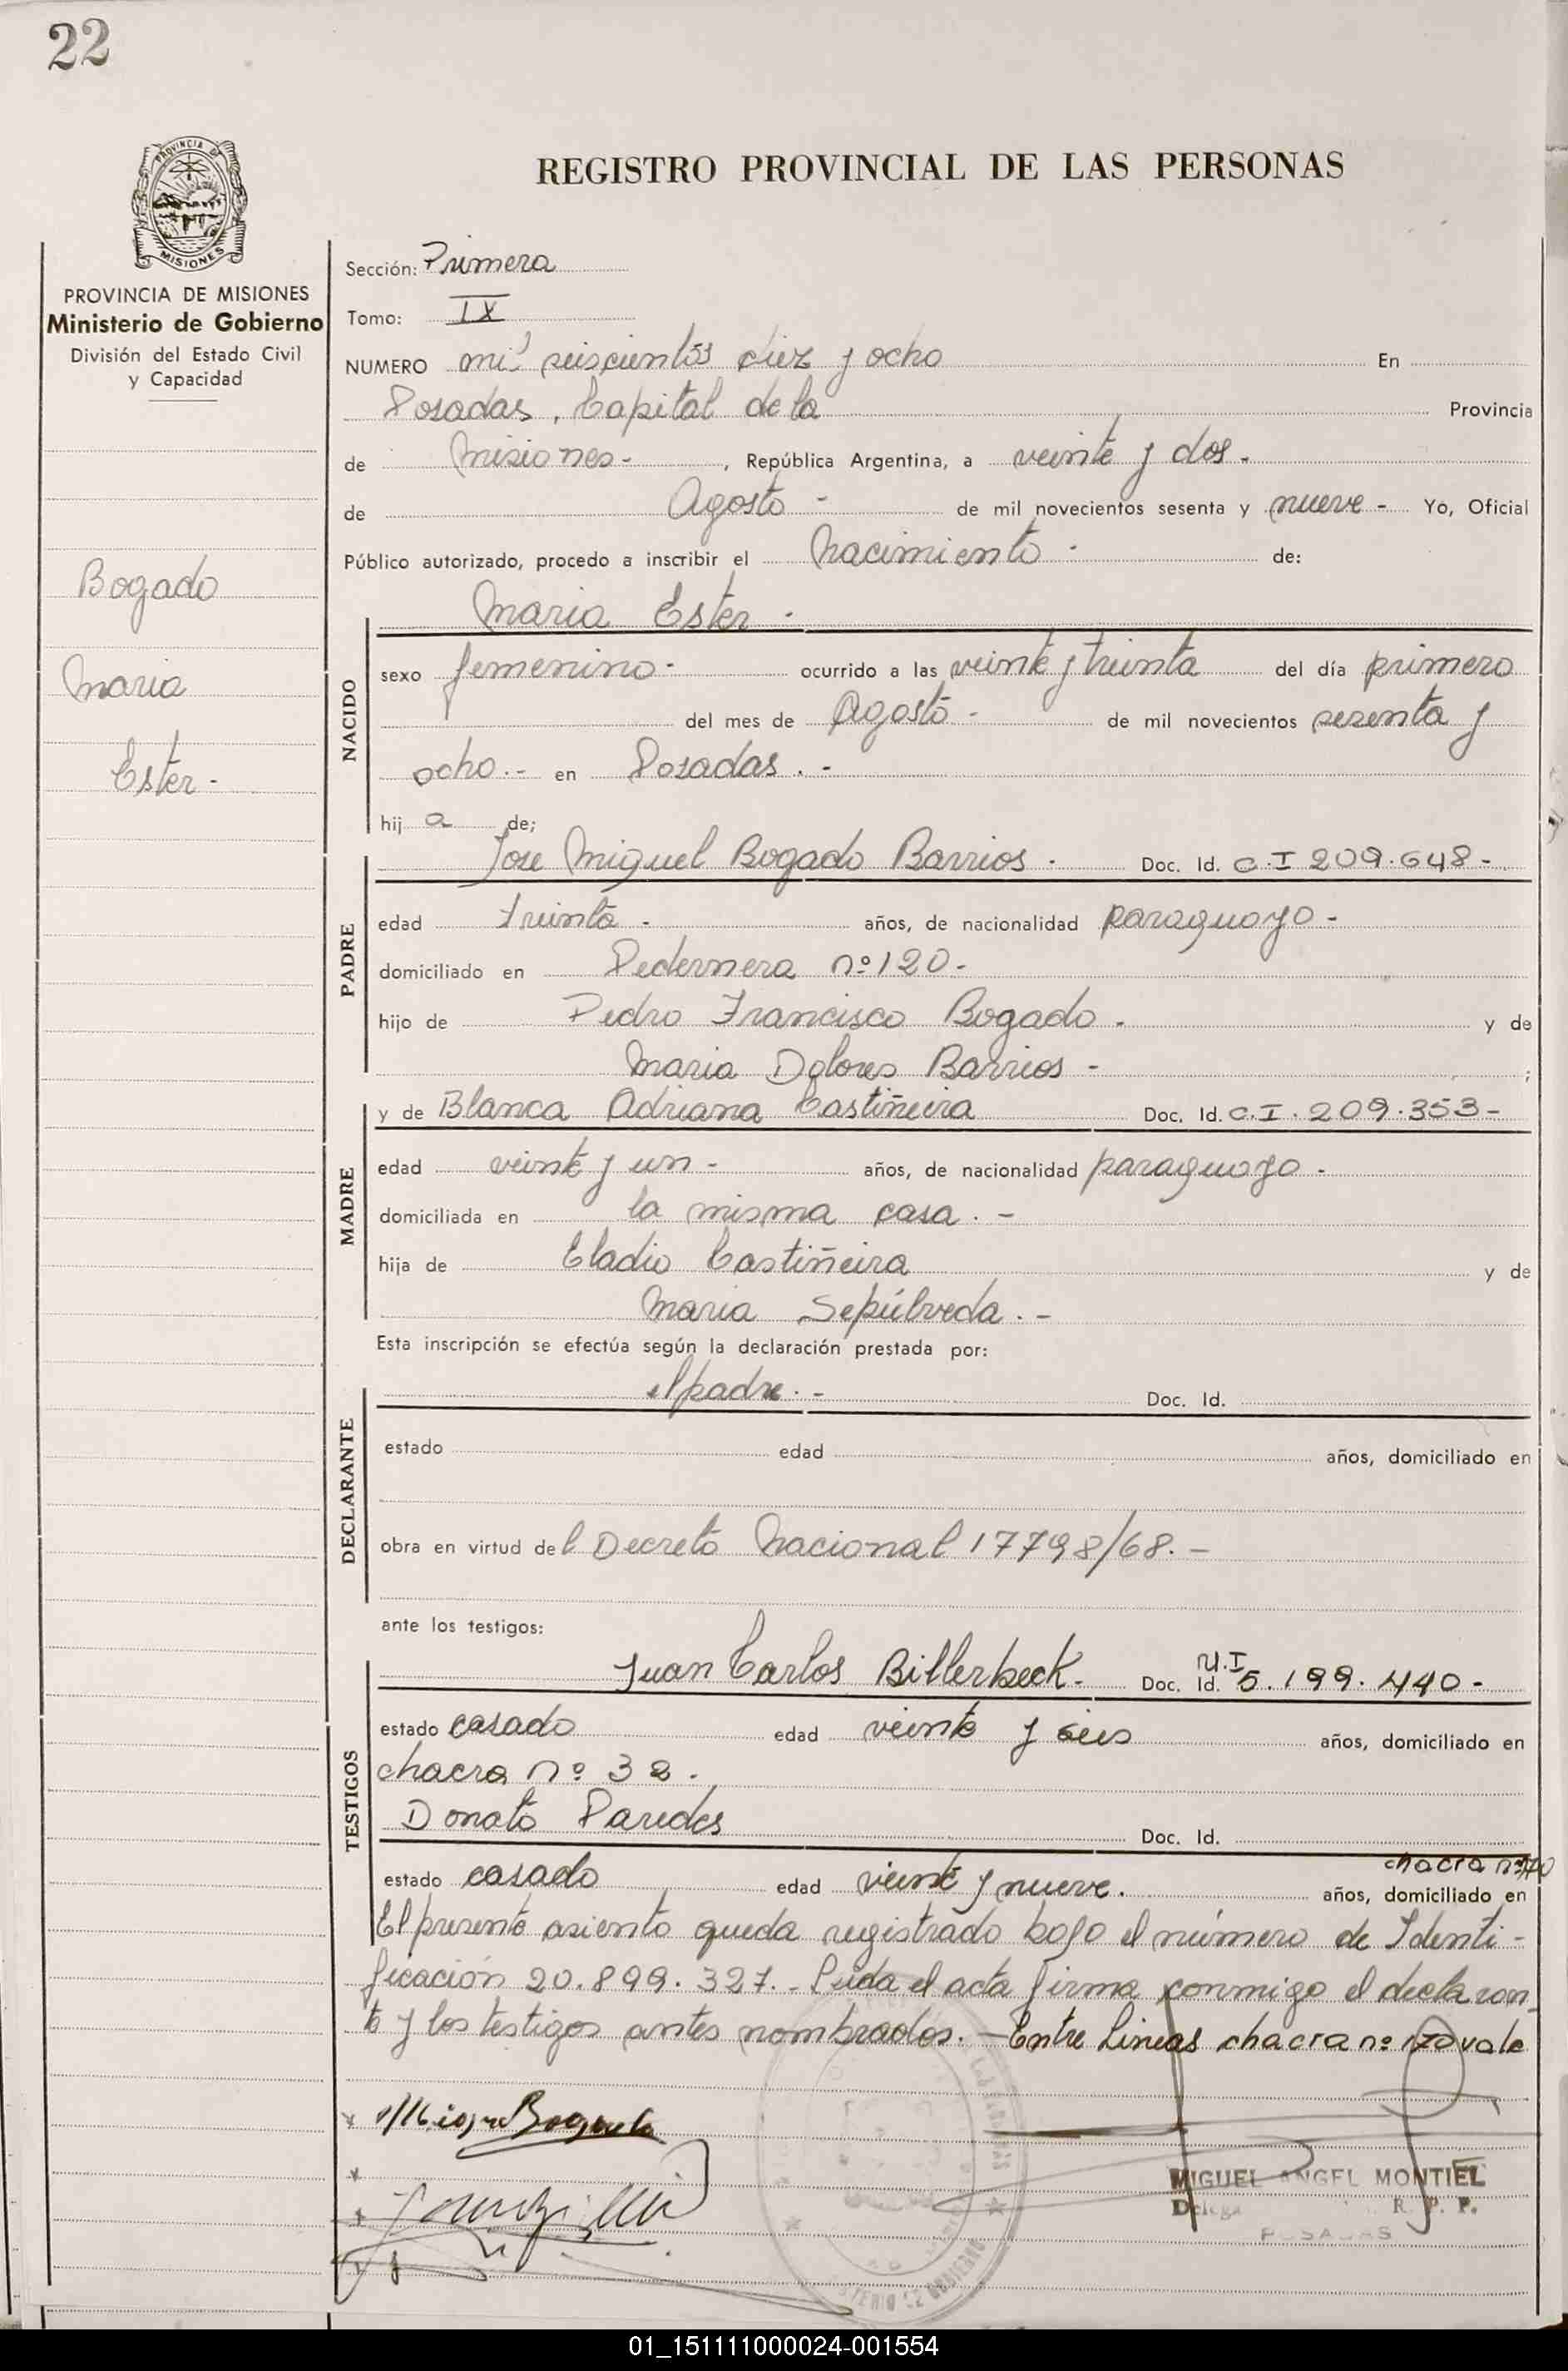 22
PROVINCIA DE
MISIONES
REGISTRO PROVINCIAL DE LAS PERSONAS
PROVINCIA DE MISIONES
Ministerio de Gobierno
División del Estado Civil
y Capacidad
Bogado
Maria
Ester -
Sección: Primera
Tomo: IX
NUMERO mil seiscientos diez y ocho En
Posadas, Capital de la Provincia
de Misiones - , República Argentina, a veinte y dos -
de Agosto - de mil novecientos sesenta y nueve - Yo, Oficial
Público autorizado, procedo a inscribir el Nacimiento - de:
Maria Ester -
NACIDO
sexo femenino - ocurrido a las veinte y treinta del día primero
del mes de Agosto - de mil novecientos sesenta y
ocho. - en Posadas . -
hij a de;
Jose Miguel Bogado Barrios - Doc. Id. C.I 209.648 -
PADRE
edad treinta - años, de nacionalidad paraguayo -
domiciliado en Pedernera nº 120 -
hijo de Pedro Francisco Bogado - y de
Maria Dolores Barrios - ;
y de Blanca Adriana Castiñeira Doc. Id. C.I. 209.353 -
MADRE
edad veinte y un - años, de nacionalidad paraguaya -
domiciliada en la misma casa . -
hija de Eladio Castiñeira y de
Maria Sepúlveda . -
Esta inscripción se efectúa según la declaración prestada por:
el padre . - Doc. Id.
DECLARANTE
estado edad años, domiciliado en
obra en virtud del Decreto Nacional 17798/68. -
ante los testigos:
Juan Carlos Billerbeck - Doc. Id. M.I 5.199.440 -
TESTIGOS
estado casado edad veinte y seis años, domiciliado en
chacra nº 32 .
Donato Paredes Doc. Id.
chacra nº 170
estado casado edad veinte y nueve . años, domiciliado en
El presente asiento queda registrado bajo el número de Identi -
ficación 20.899.327. - Leida el acta firma conmigo el declaran
te y los testigos antes nombrados. - Entre Lineas chacra nº 170 vale
Bogado
MIGUEL ANGEL MONTIEL
R. P. P.
POSADAS
01_151111000024-001554